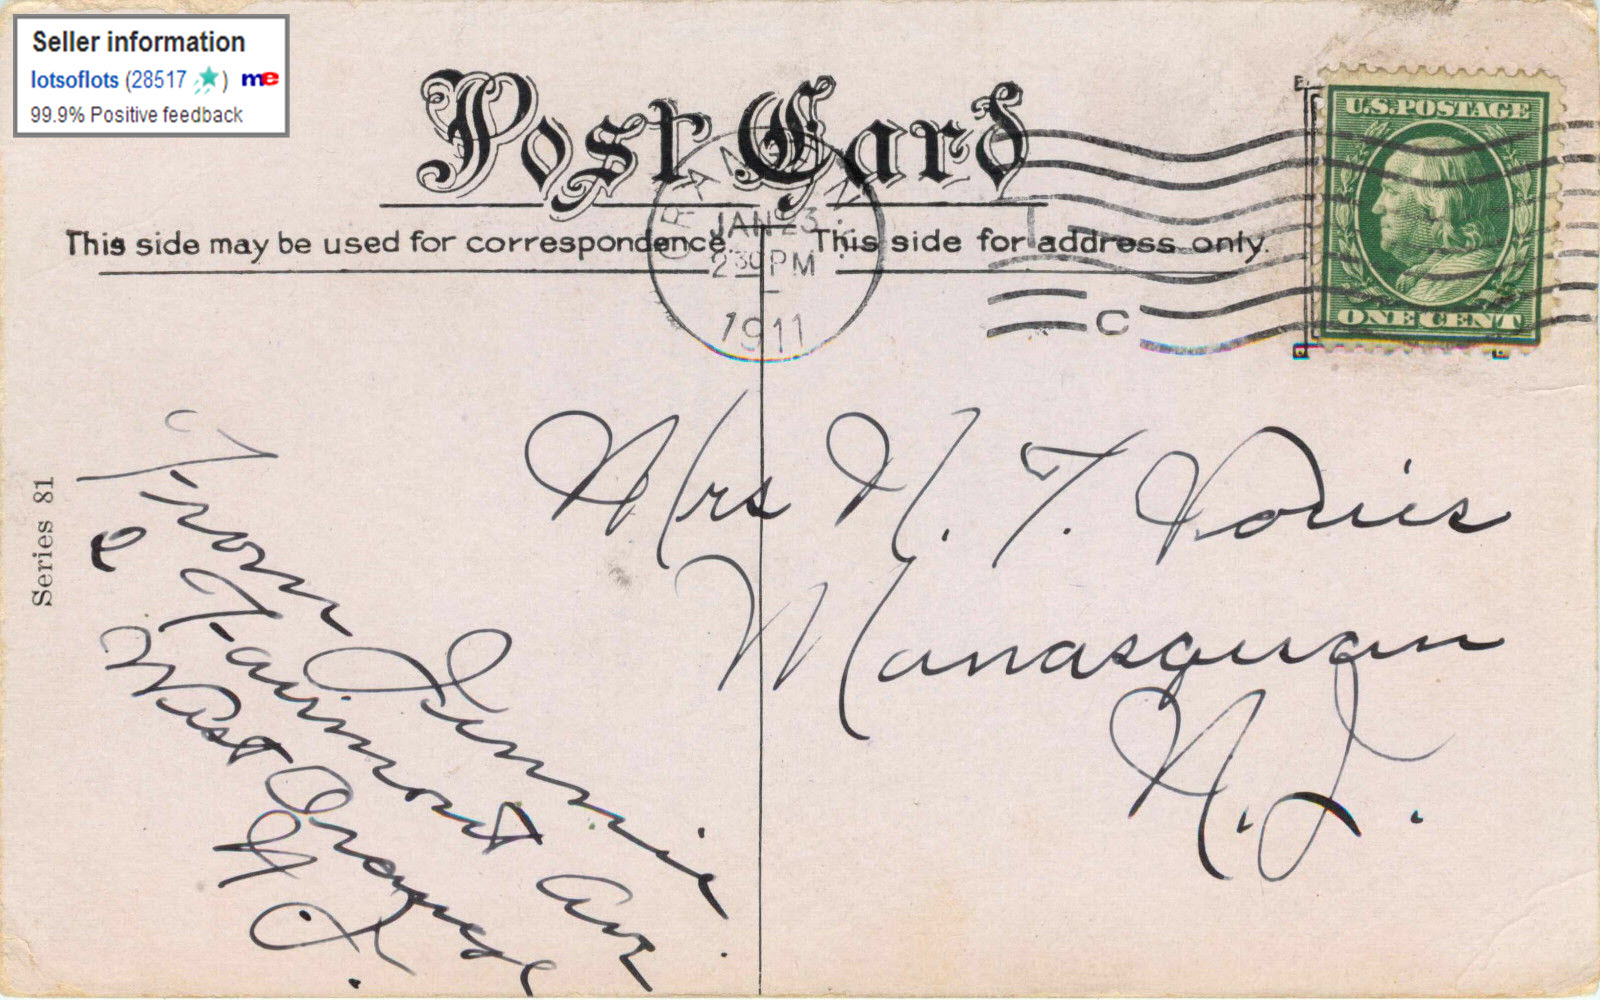 Seller information
lotsoflots (28517 ) me
99.9% Positive feedback
Post Card
U.S.POSTAGE
ONE CENT
ORANGE N.J.
JAN 23
2 30 PM
1911
C
This side may be used for correspondence.
This side for address only.
Series 81
Mrs N. T.
Manasquan
N. J.
From Jennie
Fairmont Ave
West Orange
N. J.